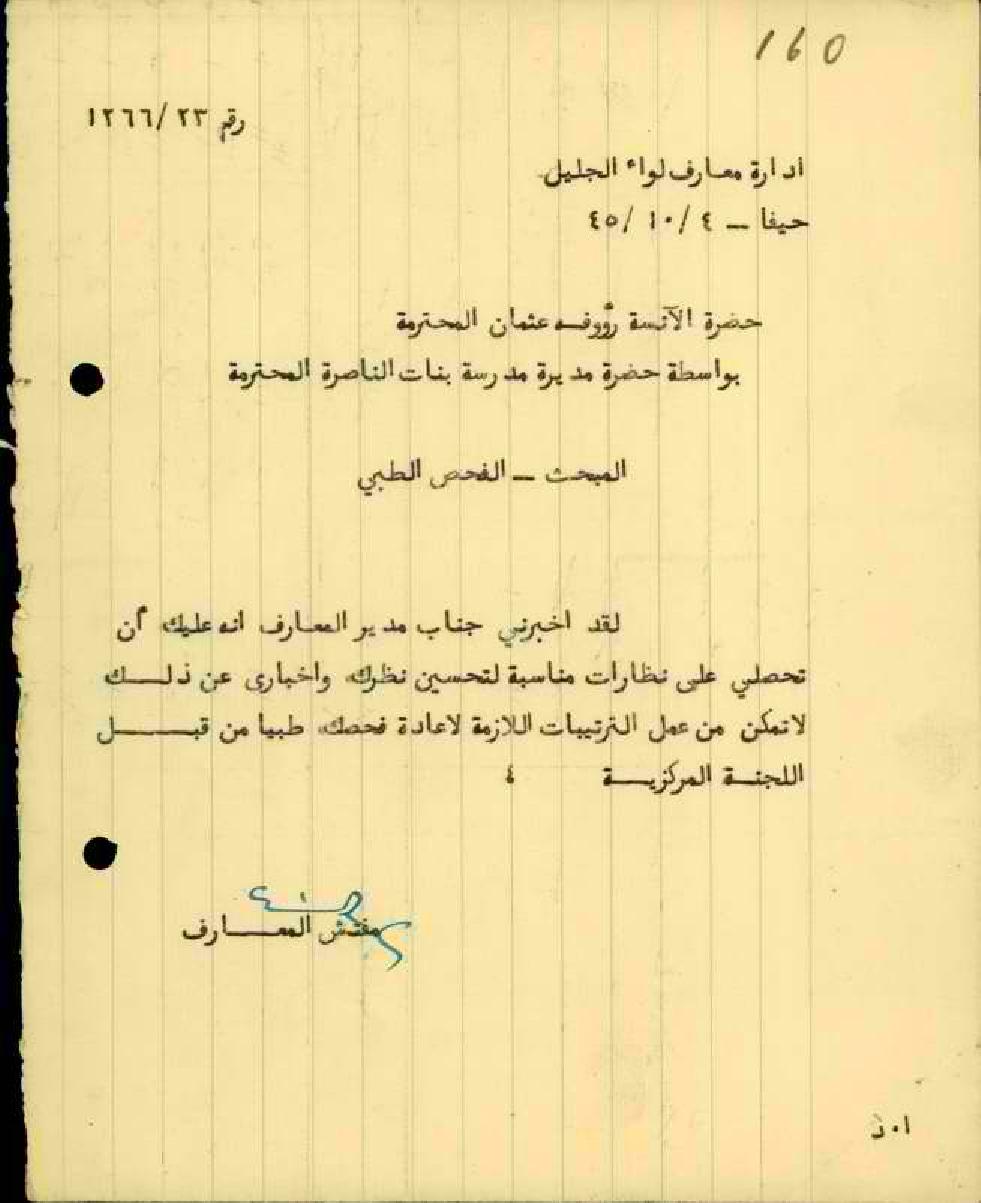 160
رقم ٢٣/١٢٦٦
ادارة معارف لواء الجليل
حيفا – ٤/ ١٠/ ٤٥
حضرة الآنسة رؤوفه عثمان المحترمة
بواسطة حضرة مديرة مدرسة بنات الناصرة المحترمة
المبحث – الفحص الطبي
لقد اخبرني جناب مدير المعارف انه عليك أن
تحصلي على نظارات مناسبة لتحسين نظرك واخبارى عن ذلـــك
لاتمكن من عمل الترتيبات اللازمة لاعادة فحصك طبيا من قبـــــل
اللجنـــة المركزيـــة ٤
مفتش المعـــــارف
ا٠ذ